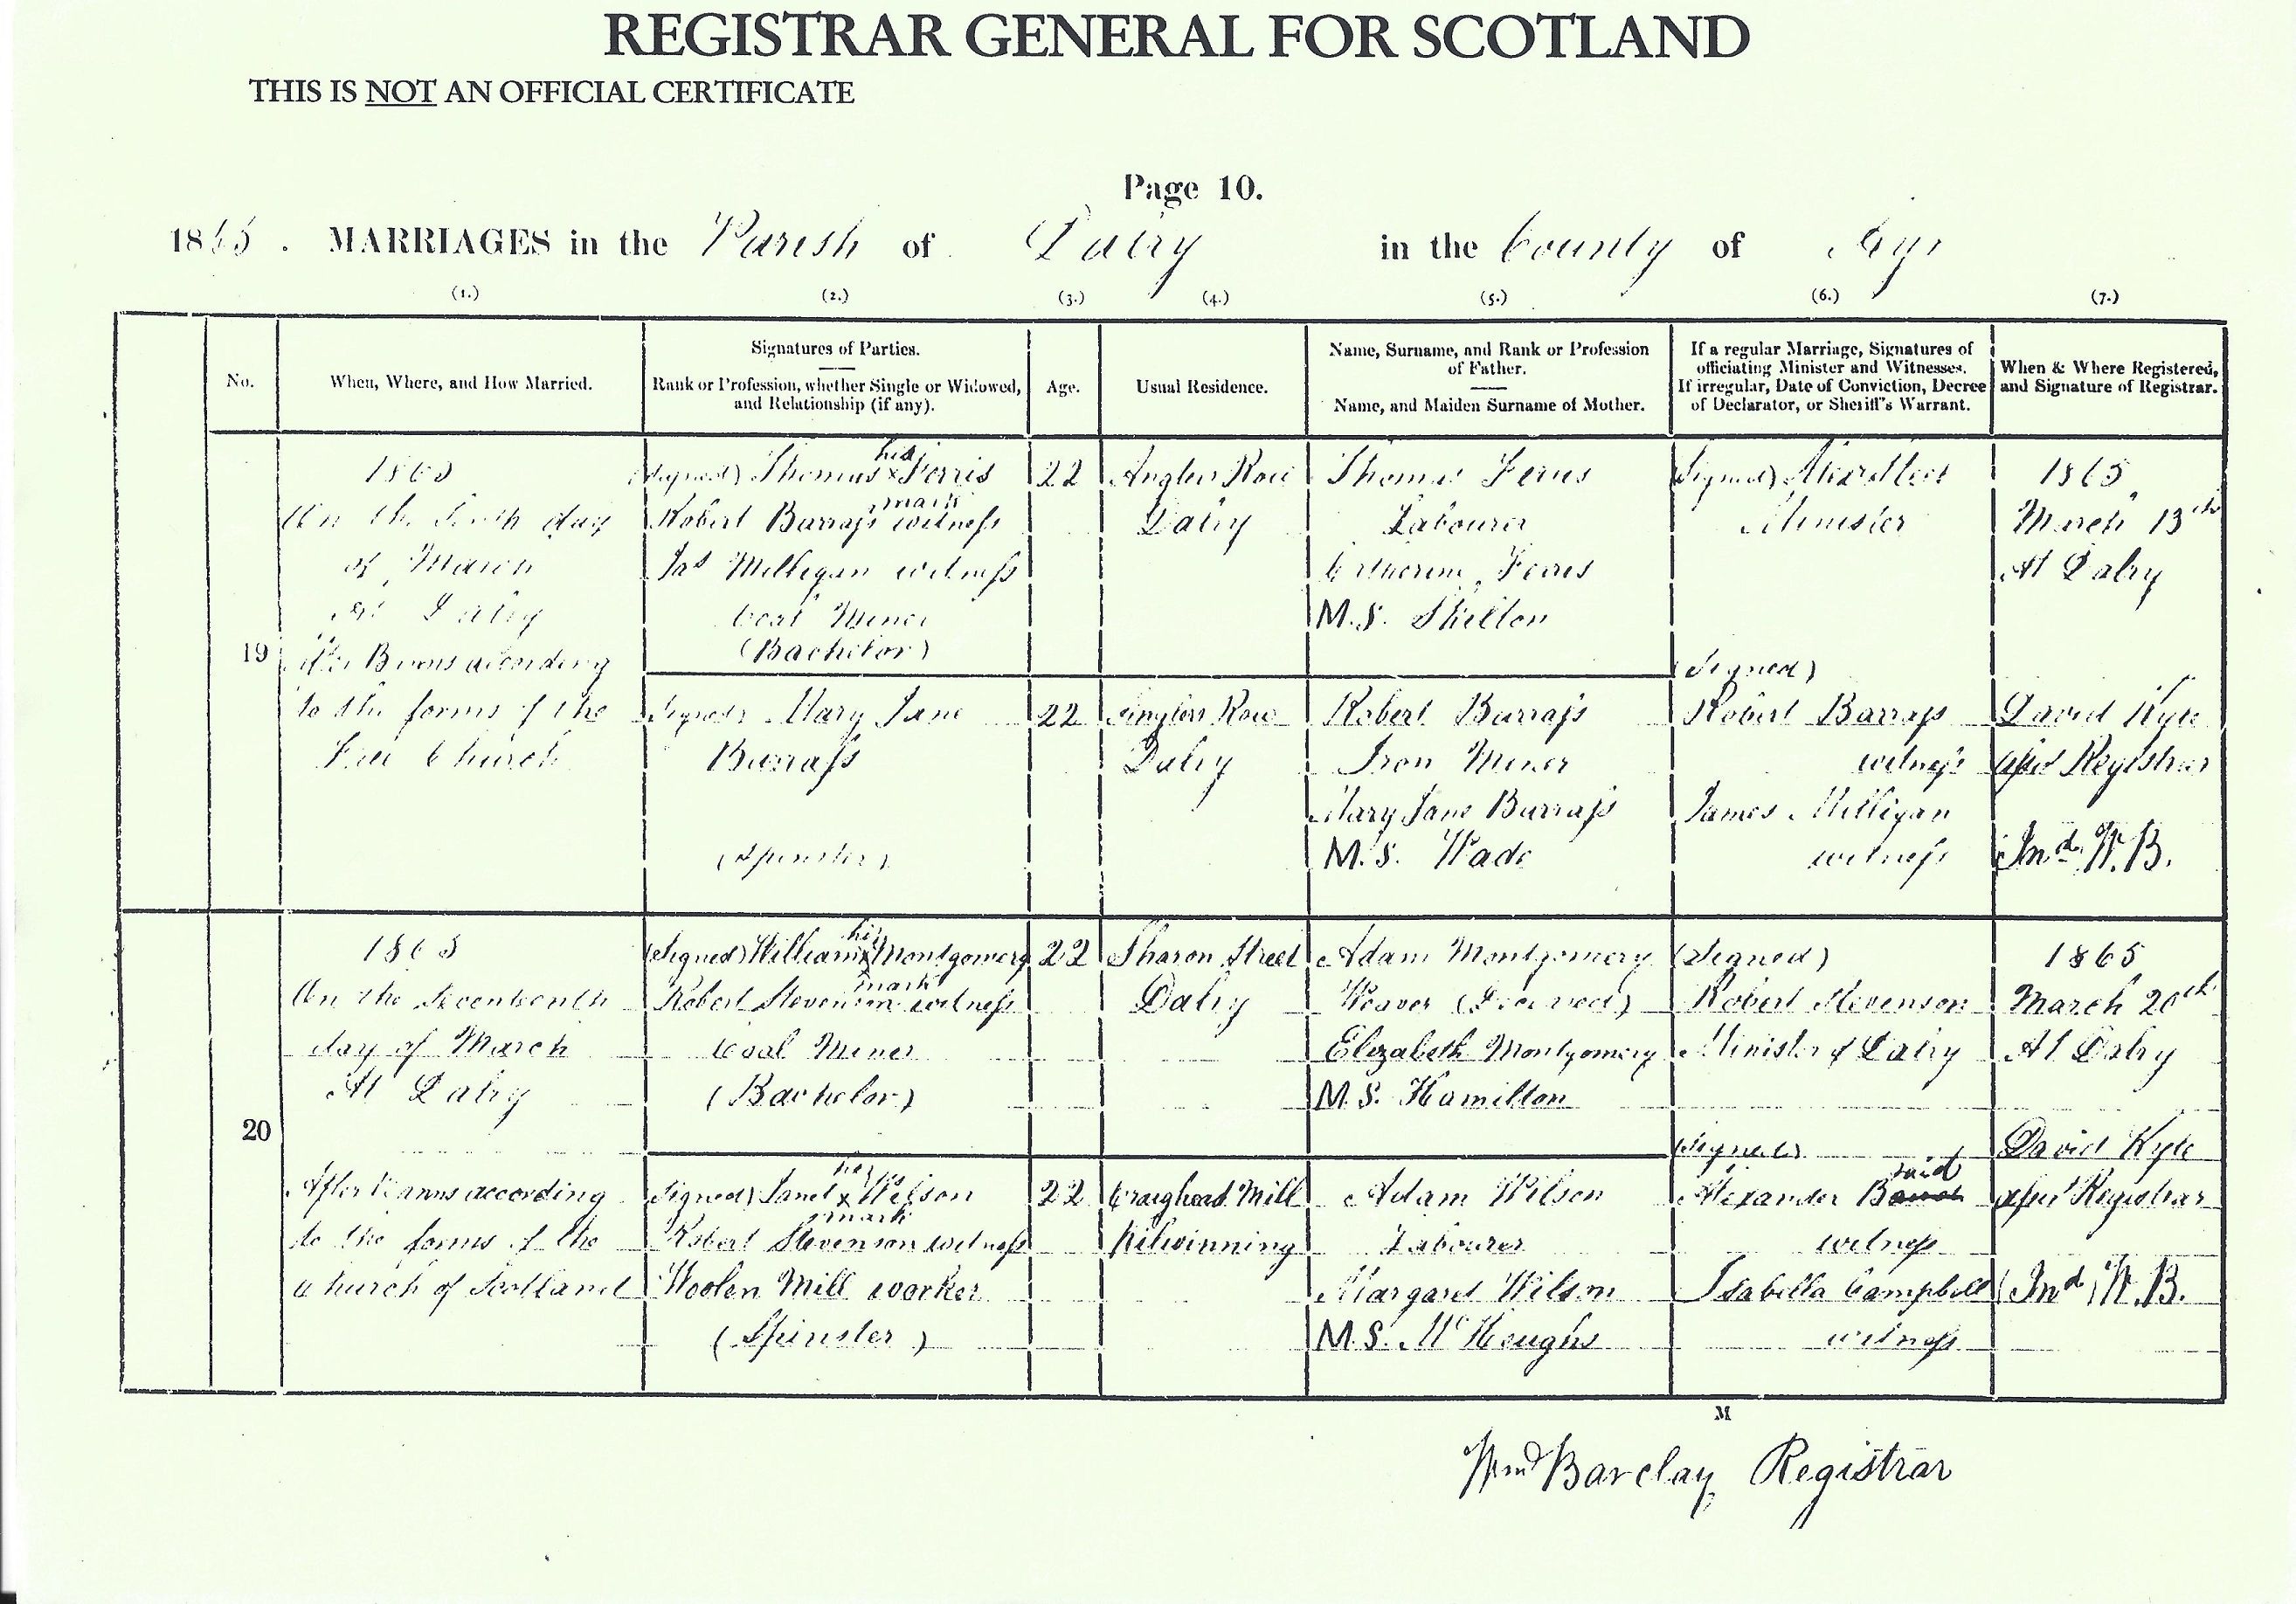 REGISTRAR GENERAL FOR SCOTLAND
THIS IS NOT AN OFFICIAL CERTIFICATE
Page 10.
1865. MARRIAGES in the Parish of Dalry in the County of Ayr
(1.) (2.) (3.) (4.) (5.) (6.) (7.)
No.
When, Where, and How Married.
Signatures of Parties.
Rank or Profession, whether Single or Widowed,
and Relationship (if any).
Age.
Usual Residence.
Name, Surname, and Rank or Profession
of Father.
Name, and Maiden Surname of Mother.
If a regular Marriage, Signatures of
officiating Minister and Witnesses.
If irregular, Date of Conviction, Decree
of Declarator, or Sheriff's Warrant.
When & Where Registered,
and Signature of Registrar.
19
1865
On the Tenth day
of March
At Dalry
After Banns according
to the forms of the
Free Church
his
(Signed) Thomas x Ferris
mark
Robert Barrass witness
Jas Milligan witness
Coal Miner
(Bachelor)
22
Anglers Row
Dalry
Thomas Ferris
Labourer
Catherine Ferris
M.S. Shelton
(Signed)
Minister
1865
March 13th
At Dalry
(Signed) Mary Jane
Barrass
(Spinster)
22
Anglers Row
Dalry
Robert Barrass
Iron Miner
Mary Jane Barrass
M.S. Wade
(Signed)
Robert Barrass
witness
James Milligan
witness
David Kyle
Asst Registrar
Ind. W.B.
20
1865
On the Seventeenth
day of March
At Dalry
After Banns according
to the forms of the
Church of Scotland
his
(Signed) William x Montgomery
mark
Robert Stevenson witness
Coal Miner
(Bachelor)
22
Sharon Street
Dalry
Adam Montgomery
Weaver (Deceased)
Elizabeth Montgomery
M.S. Hamilton
(Signed)
Robert Stevenson
Minister of Dalry
1865
March 20th
At Dalry
David Kyle
Asst Registrar
Ind. W.B.
her
(Signed) Janet x Wilson
mark
Robert Stevenson witness
Woolen Mill worker
(Spinster)
22
Craighead Mill
Kilwinning
Adam Wilson
Labourer
Margaret Wilson
M.S. McHeughs
(Signed)
Alexander Baird
witness
Isabella Campbell
witness
M
Wm Barclay Registrar